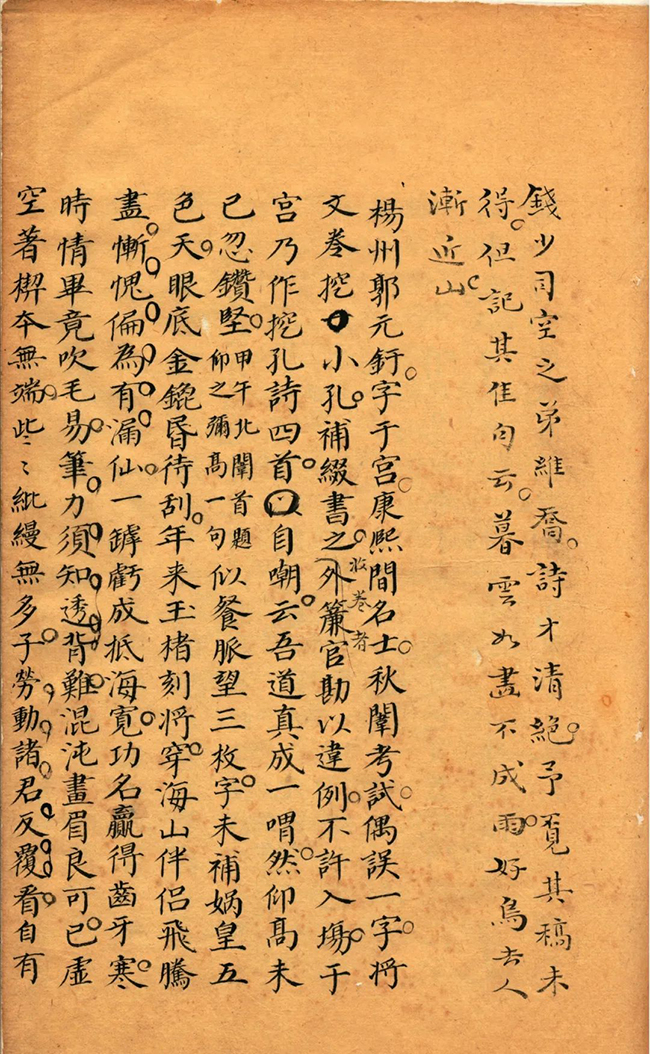 錢少司空之弟維喬。詩才清絕。予覓其稿未
得。但記其佳句云。暮雲如畫不成雨。好鳥去人
漸近山。
楊州郭元釪。字于宮。康熙間名士。秋闈考試。偶誤一字。將
文卷挖一小孔。補綴書之。收卷者外簾官勘以違例。不許入場。于
宮乃作挖孔詩四首。自嘲云。吾道真成一喟然。仰高未
已忽鑽堅。甲午北闈首題仰之彌高一句似餐脈望三枚字。未補媧皇五
色天。眼底金鎞昏待刮。年来玉楮刻將穿。海山伴侶飛騰
盡。慚愧偏為有漏仙。一罅虧成抵海寬。功名贏得齒牙寒。
時情畢竟吹毛易。筆力須知透背難。混沌畫眉良可已。虛
空著楔本無端。此〻紕縵無多子。勞動諸君反覆看。自有